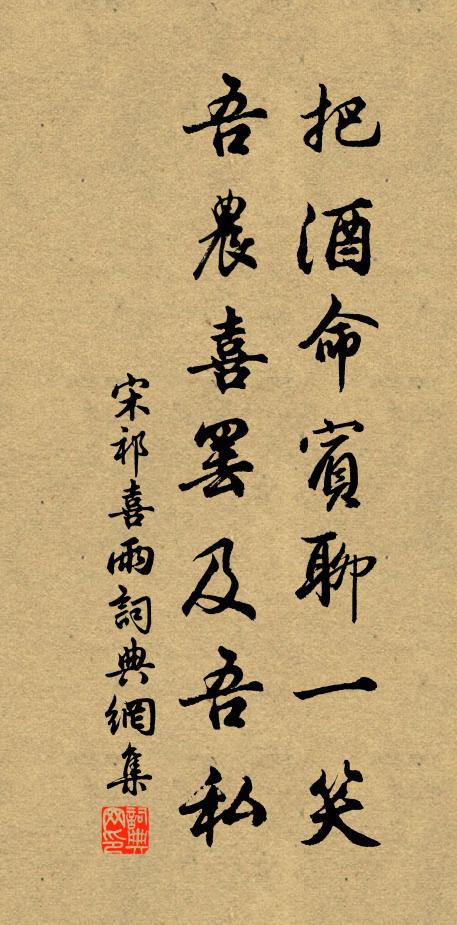 把酒命賓聊一笑
吾農喜罷及吾私
宋祁喜雨詞典網集
詞典网印